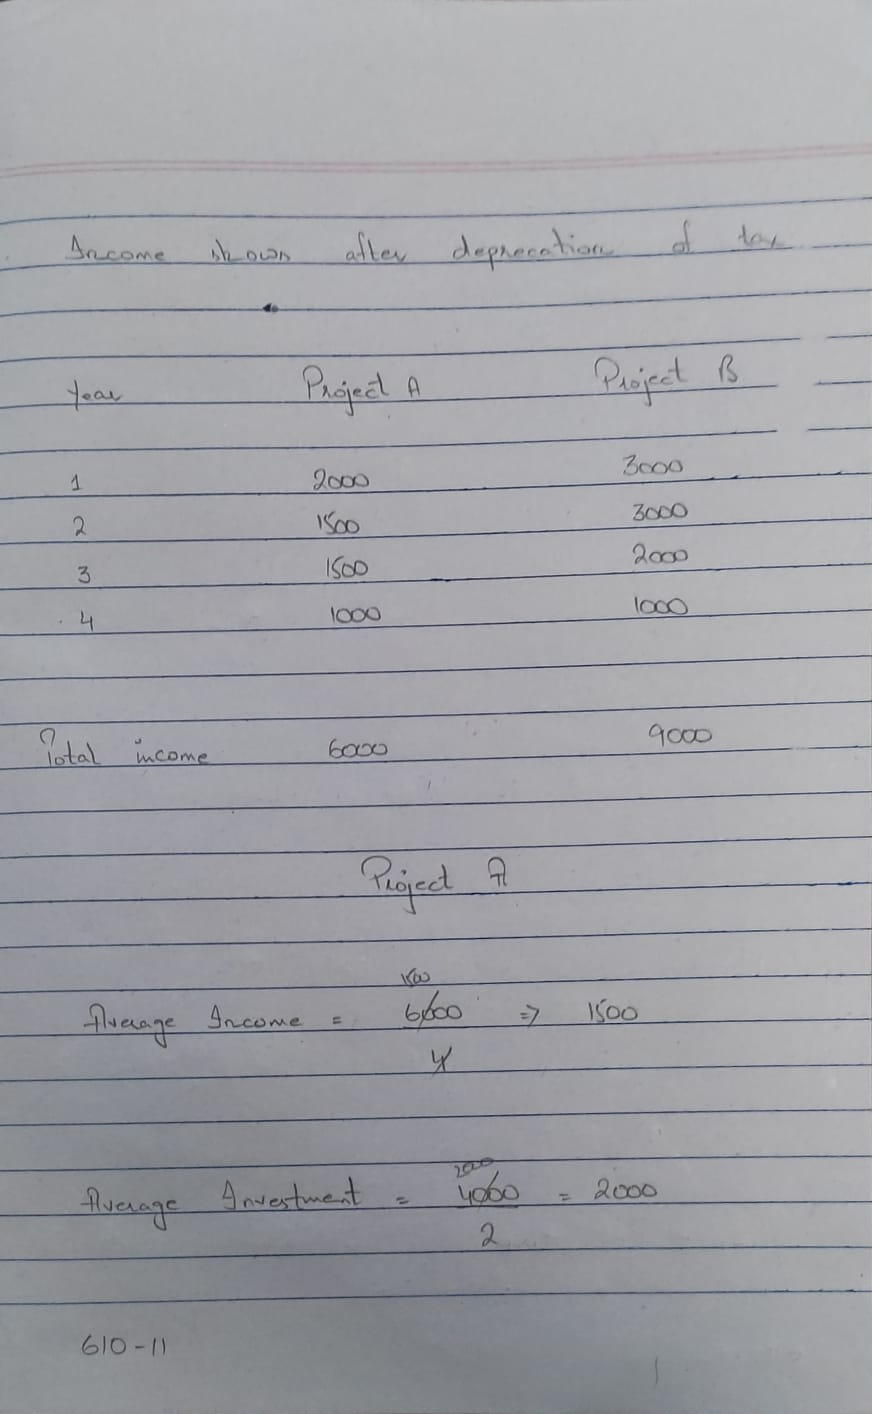 Income shown after deprecation of tax
Year Project A Project B
1 2000 3000
2 1500 3000
3 1500 2000
4 1000 1000
Total income 6000 9000
Project A
1500
Average Income = 6000 => 1500
4
2000
Average Investment = 4000 = 2000
2
610-11